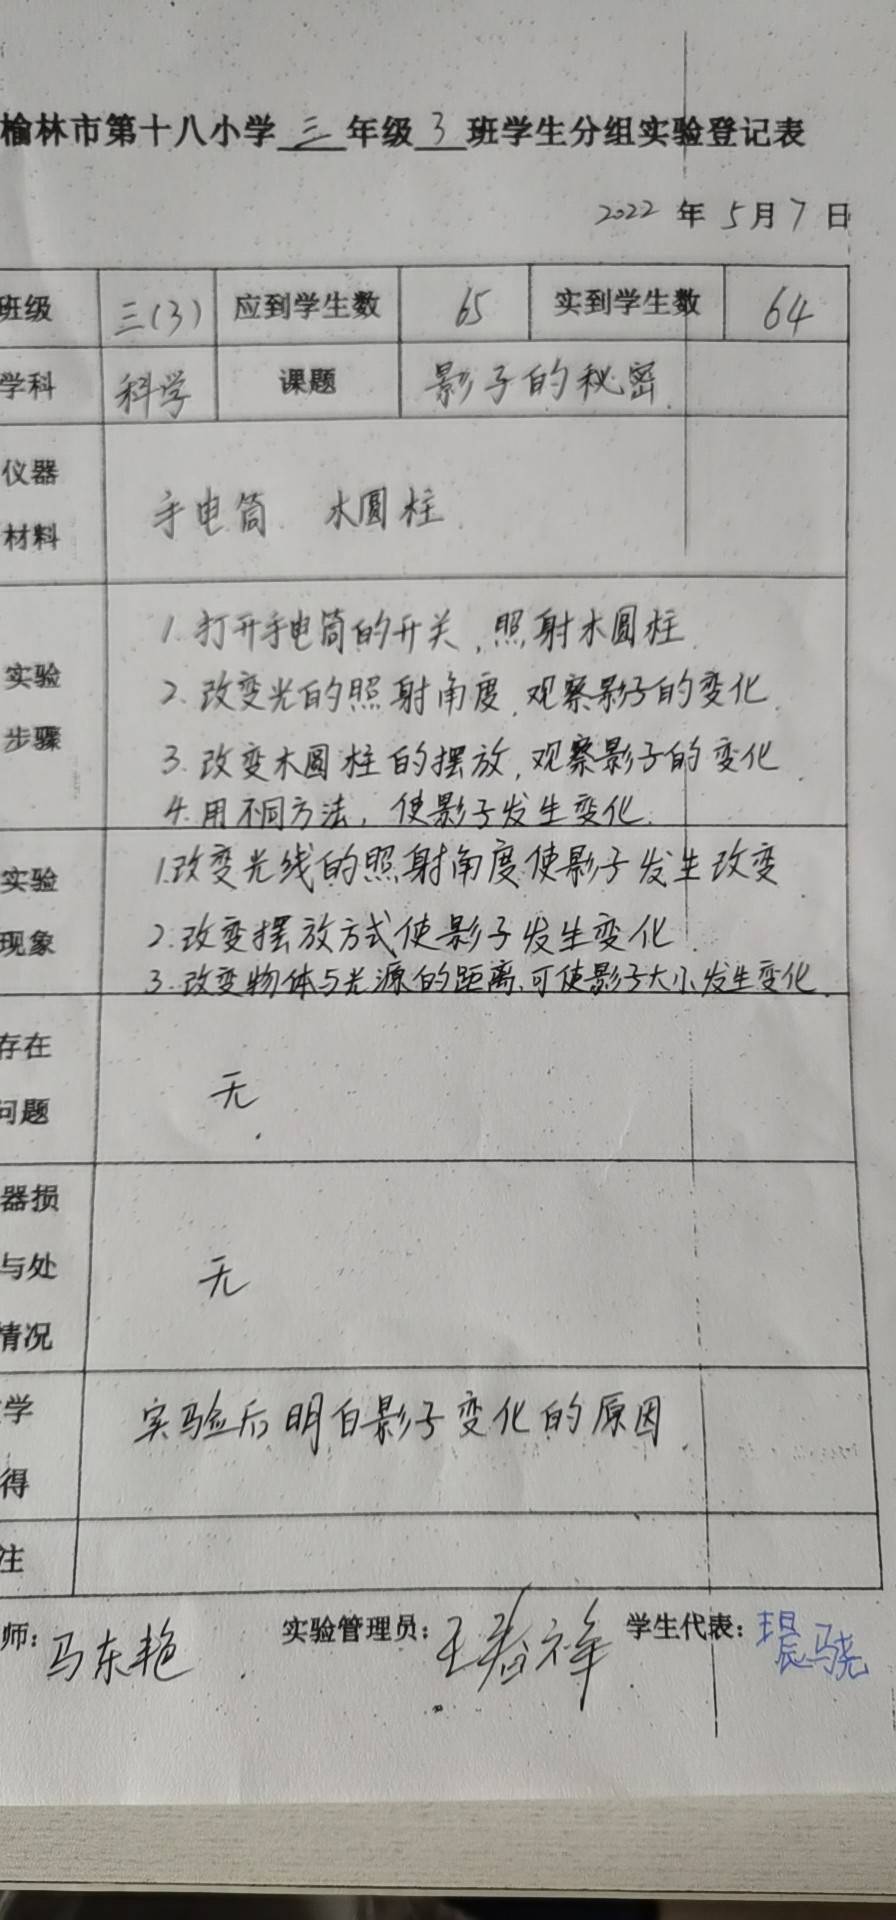 榆林市第十八小学三年级3班学生分组实验登记表
2022年5月7日
班级 三(3) 应到学生数 65 实到学生数 64
学科 科学 课题 影子的秘密
仪器
材料
手电筒 木圆柱
实验
步骤
1.打开手电筒的开关,照射木圆柱.
2.改变光的照射角度,观察影子的变化.
3.改变木圆柱的摆放,观察影子的变化
4.用不同方法,使影子发生变化.
实验
现象
1.改变光线的照射角度使影子发生改变
2.改变摆放方式使影子发生变化.
3.改变物体与光源的距离,可使影子大小发生变化.
存在
问题
无
器损
与处
情况
无
学
得
实验后明白影子变化的原因
注
师:马东艳 实验管理员: 学生代表: